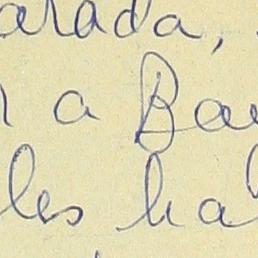 arada,
a Ba
les ha